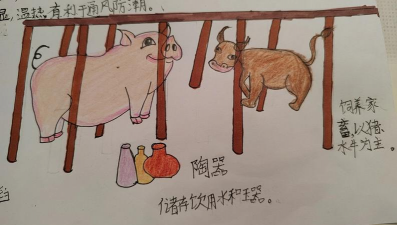 湿,温热,有利于通风防潮。
饲养家
畜,以猪
水牛为主。
陶器
储存饮用水和玉器。